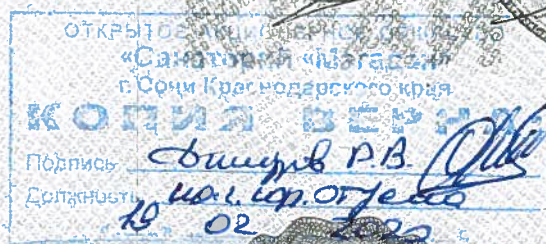 ОТКРЫТОЕ АКЦИОНЕРНОЕ ОБЩЕСТВО
«Санаторий «Магадан»
г. Сочи Краснодарского края
КОПИЯ ВЕРНА
Подпись Р.В.
Должность нач. юр. отдела
19 02